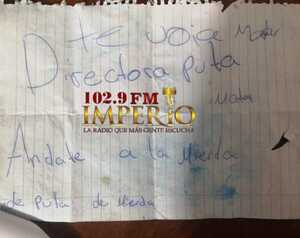 te voi a Matar
Directora puta
102.9 FM
IMPERIO
LA RADIO QUE MÁS GENTE ESCUCHA
Mata
Andate a la Mierda
de puta de Mierda